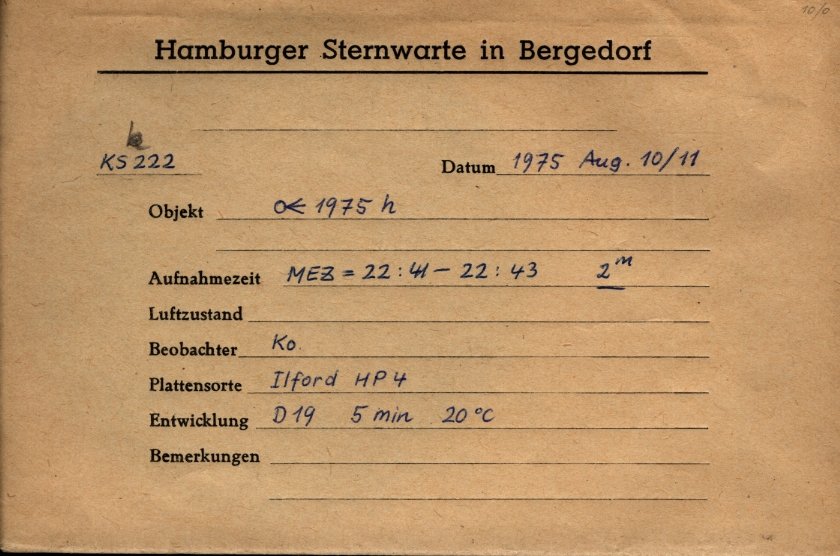 10/0
Hamburger Sternwarte in Bergedorf
b
KS 222
Datum 1975 Aug. 10/11
Objekt ☄ 1975 h
Aufnahmezeit MEZ = 22 : 41 – 22 : 43 2ᵐ
Luftzustand
Beobachter Ko.
Plattensorte Ilford HP4
Entwicklung D19 5 min 20 °C
Bemerkungen